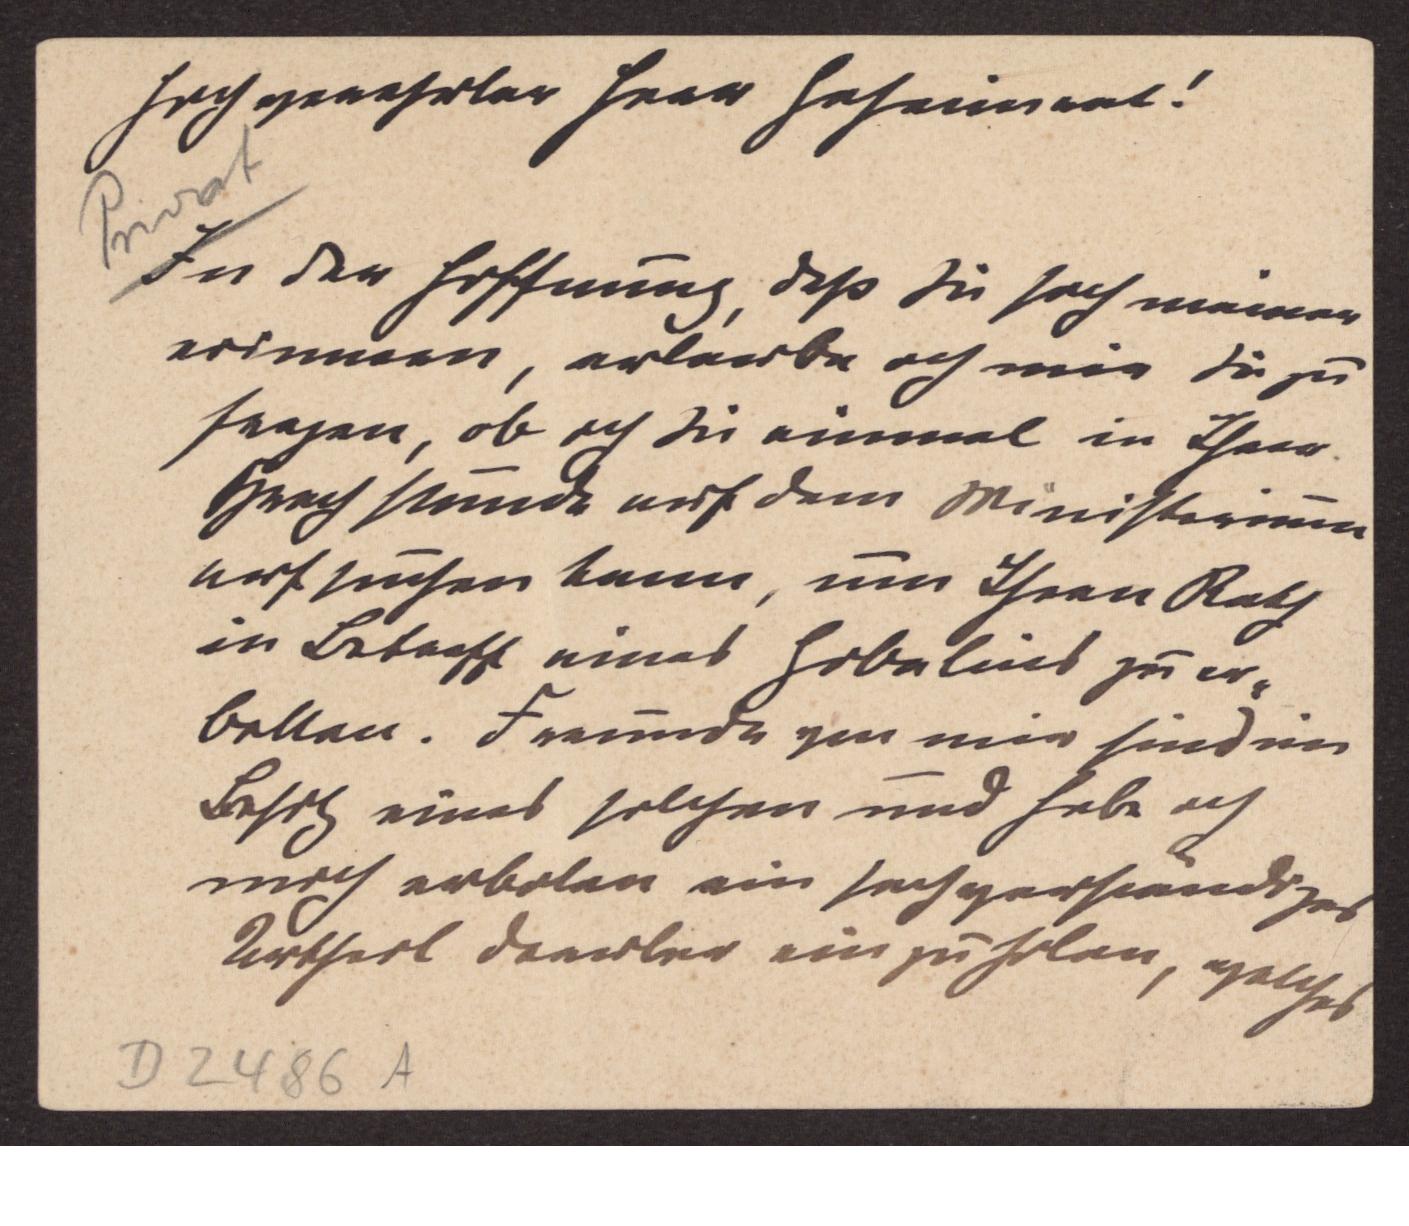 Hochverehrter Herr Geheimrat!
Privat
In der Hoffnung, daß Sie sich meiner
erinnern, erlaube ich mir Sie zu
fragen, ob ich Sie einmal in Ihrer
Sprechstunde auf dem Ministerium
aufsuchen kann, um Ihren Rath
in Betreff eines Gobelins zu er-
bitten. Freunde von mir sind im
Besitz eines solchen und habe ich
mich erboten ein sachverständiges
Urtheil darüber einzuholen, welches
D 2486 A